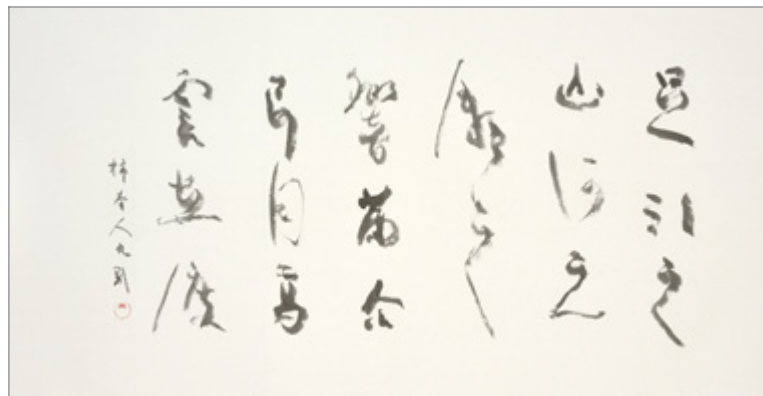 足引之
山河之
瀬之
響苗尒
弓月高
雲立渡
柿本人丸